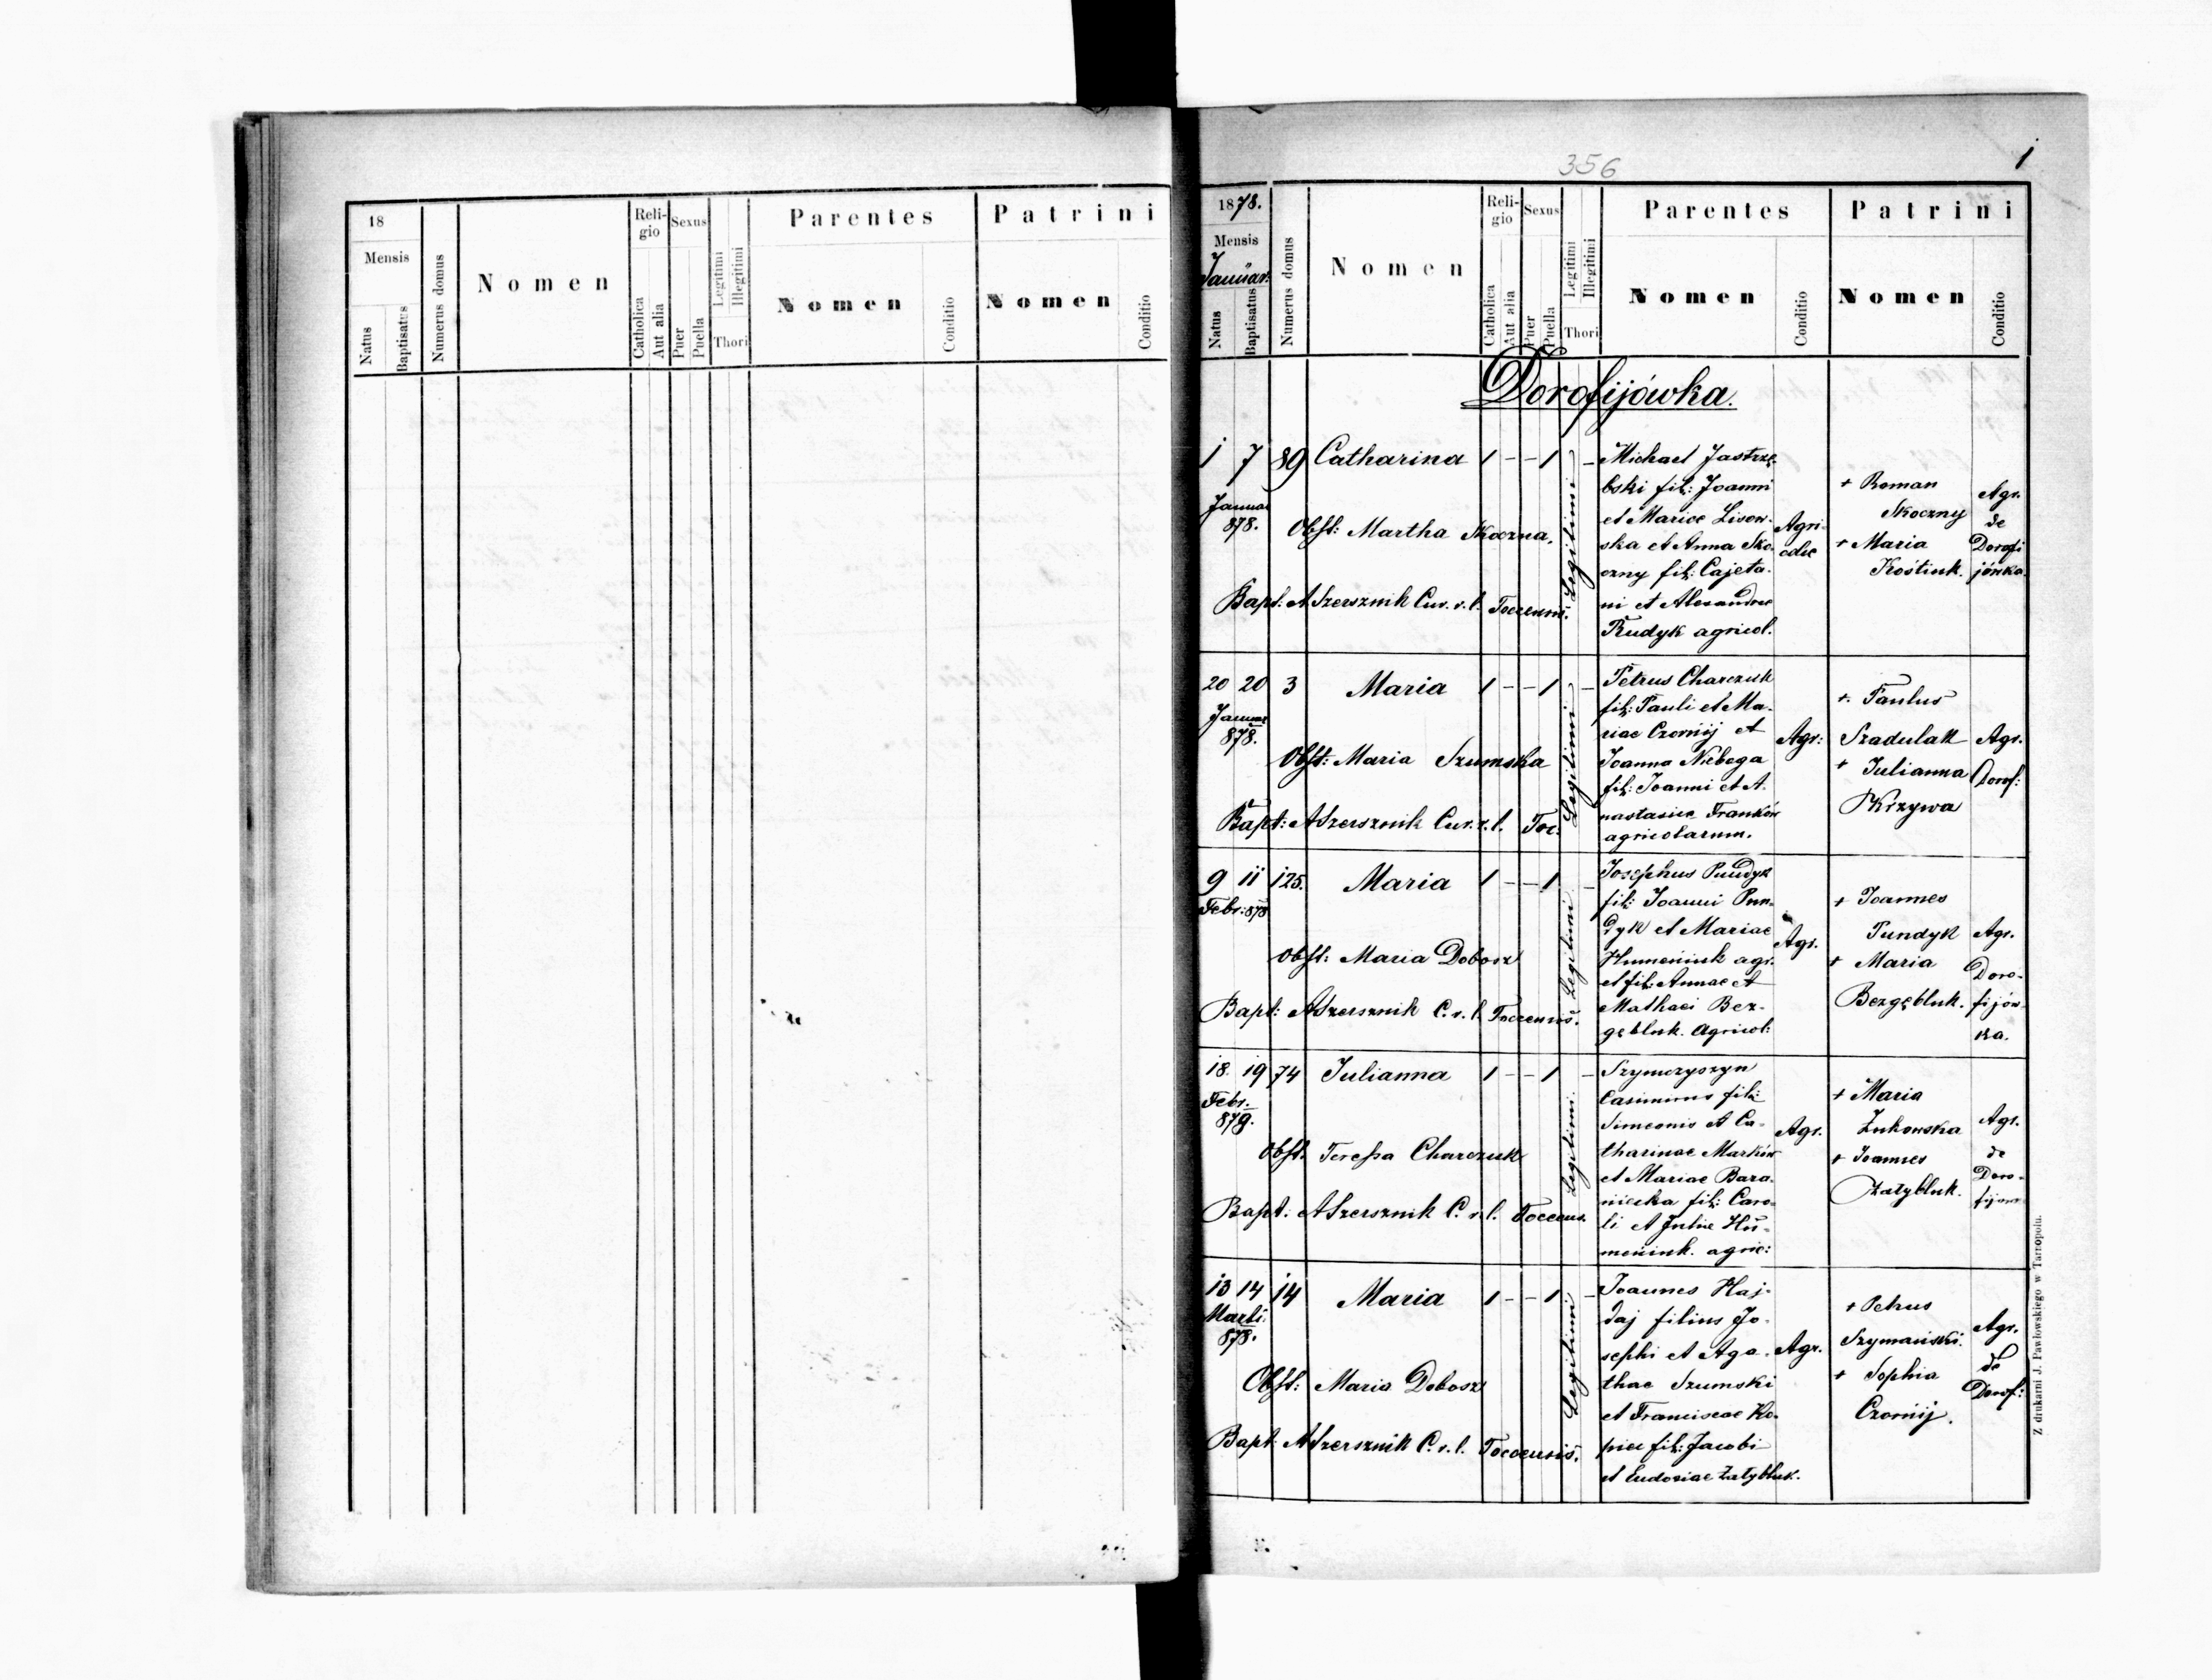 18
Mensis
Natus
Baptisatus
Numerus domus
Nomen
Reli-
gio
Catholica
Aut alia
Sexus
Puer
Puella
Legitimi
Illegitimi
Thori
Parentes
Nomen
Conditio
Patrini
Nomen
Conditio
356
1
1878.
Mensis
Januar.
Natus
Baptisatus
Numerus domus
Nomen
Reli-
gio
Catholica
Aut alia
Sexus
Puer
Puella
Legitimi
Illegitimi
Thori
Parentes
Nomen
Conditio
Patrini
Nomen
Conditio
Dorofijówka.
1 7 89 Catharina 1 - - 1 -
Januar
878.
Obst: Martha Skoczna.
Bapt: A Szersznik Cur. r. l. Toccensis.
Legitimi
Michael Jastrzę-
bski fil: Joanni
et Mariae Lisow-
ska et Anna Sko-
czny fil: Cajeta-
ni et Alexandrae
Rudyk agricol.
Agri-
colae
+ Roman
Skoczny
+ Maria
Kostiuk.
Agr.
de
Dorofi
jówka.
20 20 3 Maria 1 - - 1 -
Januar
878.
Obst: Maria Szumska
Bapt: A Szersznik Cur. r. l. Toc:
Legitimi
Petrus Charczuk
fil: Pauli et Ma-
riae Czornij et
Joanna Niebega
fil: Joanni et A-
nastasiae Franków
agricolarum.
Agr:
+ Paulus
Szadulak
+ Julianna
Krzywa
Agr.
Dorof:
9 11 125. Maria 1 - - 1 -
Febr: 878
Obst: Maria Dobosz
Bapt: A Szersznik C. r. l. Toccensis.
Legitimi
Josephus Pundyk
fil: Joanni Pun-
dyk et Mariae
Humeniuk agr.
et fil: Annae et
Mathaei Bez-
gębluk. Agricol:
Agr.
+ Joannes
Pundyk
+ Maria
Bezgębluk.
Agr.
Doro-
fijów-
ka.
18. 19 74 Julianna 1 - - 1 -
Febr.
879.
Obst. Teressa Charczuk
Bapt: A Szersznik C. r. l. Toccens.
Legitimi.
Szymczyszyn
Casimirus fil:
Simeonis et Ca-
tharinae Marków
et Mariae Bara-
niecka fil: Caro-
li et Juliae Hu-
meniuk. agric:
Agr.
+ Maria
Żukowska
+ Joannes
Załybluk.
Agr.
de
Doro-
fijow
13 14 14 Maria 1 - - 1 -
Marti.
878.
Obst: Maria Dobosz
Bapt: A Szersznik C. r. l. Toccensis.
Legitimi
Joannes Haj-
daj filius Jo-
sephi et Aga-
thae Szumski
et Franciscae Ko-
piec fil: Jacobi
et Eudoxiae Załybluk.
Agr.
+ Petrus
Szymański.
+ Sophia
Czornij.
Agr.
de
Dorof:
Z drukarni J. Pawłowskiego w Tarnopolu.